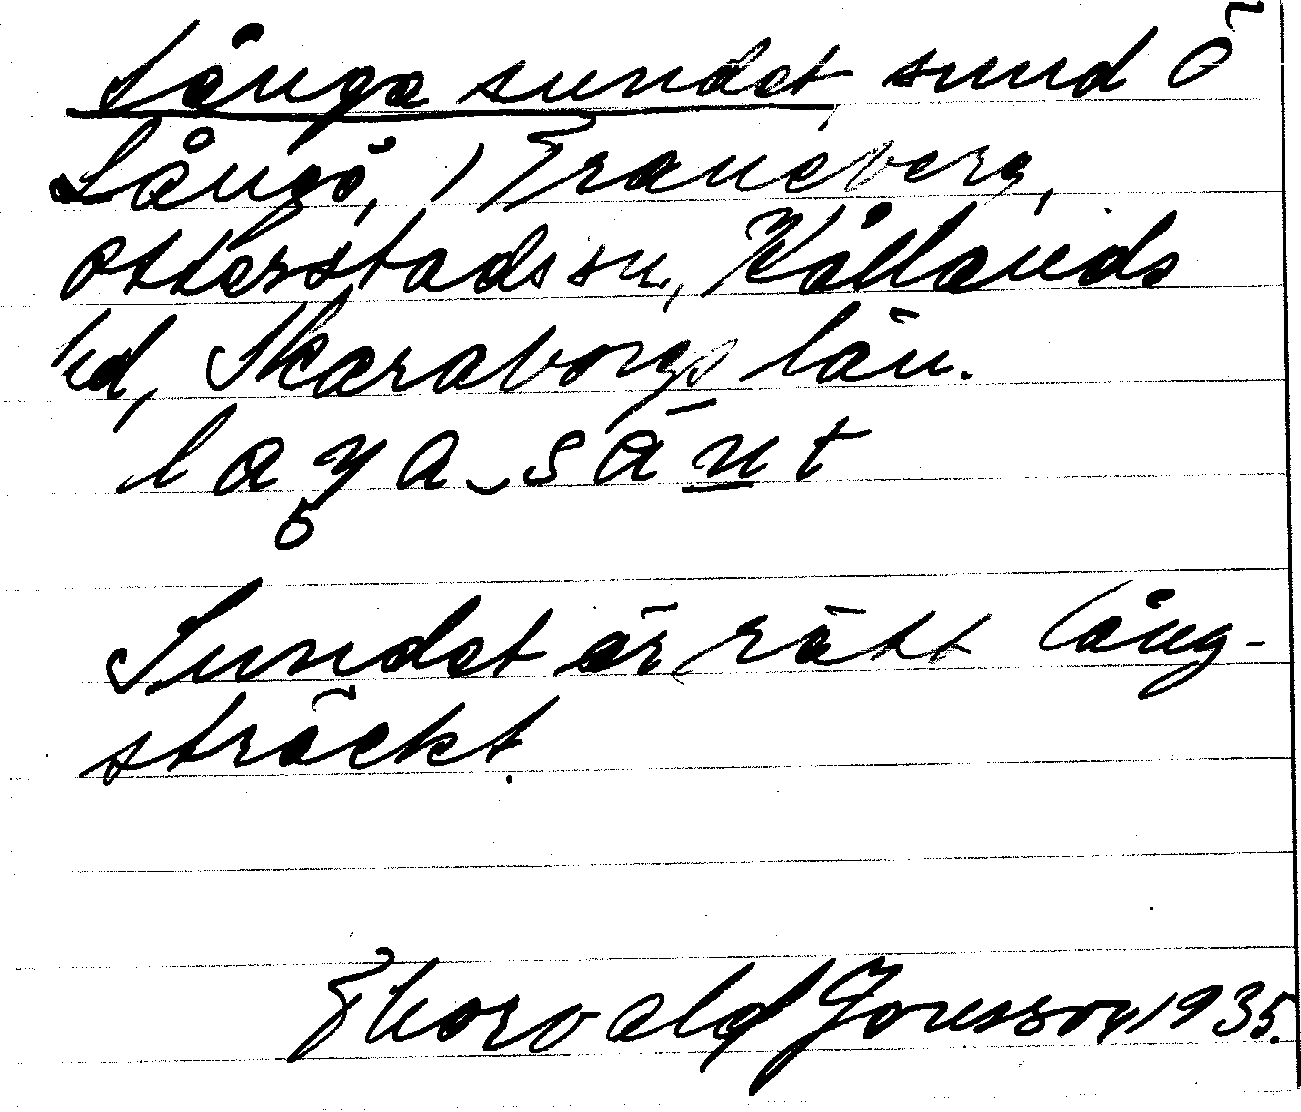 Långa sundet sund Ö
Långö, 1 Traneberg,
Otterstads sn, Kållands
hd, Skaraborgs län.
Sundet är rätt lång-
sträckt.
Thorvald Jonsson 1935.